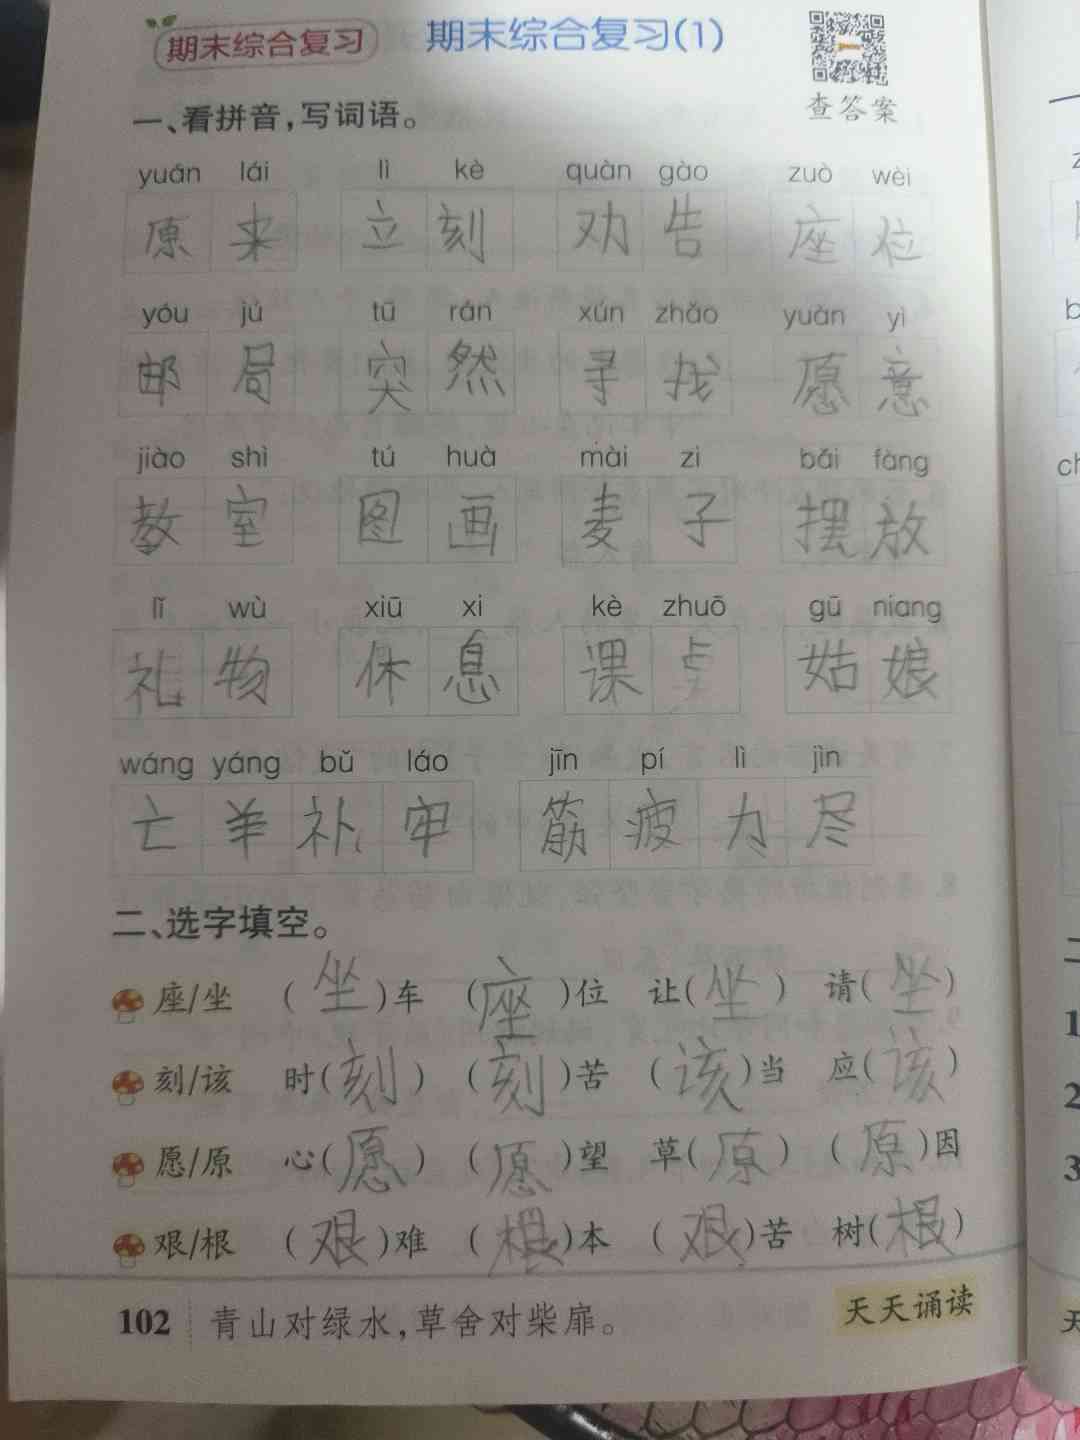 期末综合复习 期末综合复习(1)
查答案
一、看拼音,写词语。
yuán lái lì kè quàn gào zuò wèi
原来 立刻 劝告 座位
yóu jú tū rán xún zhǎo yuàn yì
邮局 突然 寻找 愿意
jiào shì tú huà mài zi bǎi fàng
教室 图画 麦子 摆放
lǐ wù xiū xi kè zhuō gū niang
礼物 休息 课桌 姑娘
wáng yáng bǔ láo jīn pí lì jìn
亡羊补牢 筋疲力尽
二、选字填空。
座/坐 (坐)车 (座)位 让(坐) 请(坐)
刻/该 时(刻) (刻)苦 (该)当 应(该)
愿/原 心(愿) (愿)望 草(原) (原)因
艰/根 (艰)难 (根)本 (艰)苦 树(根)
102 青山对绿水,草舍对柴扉。 天天诵读